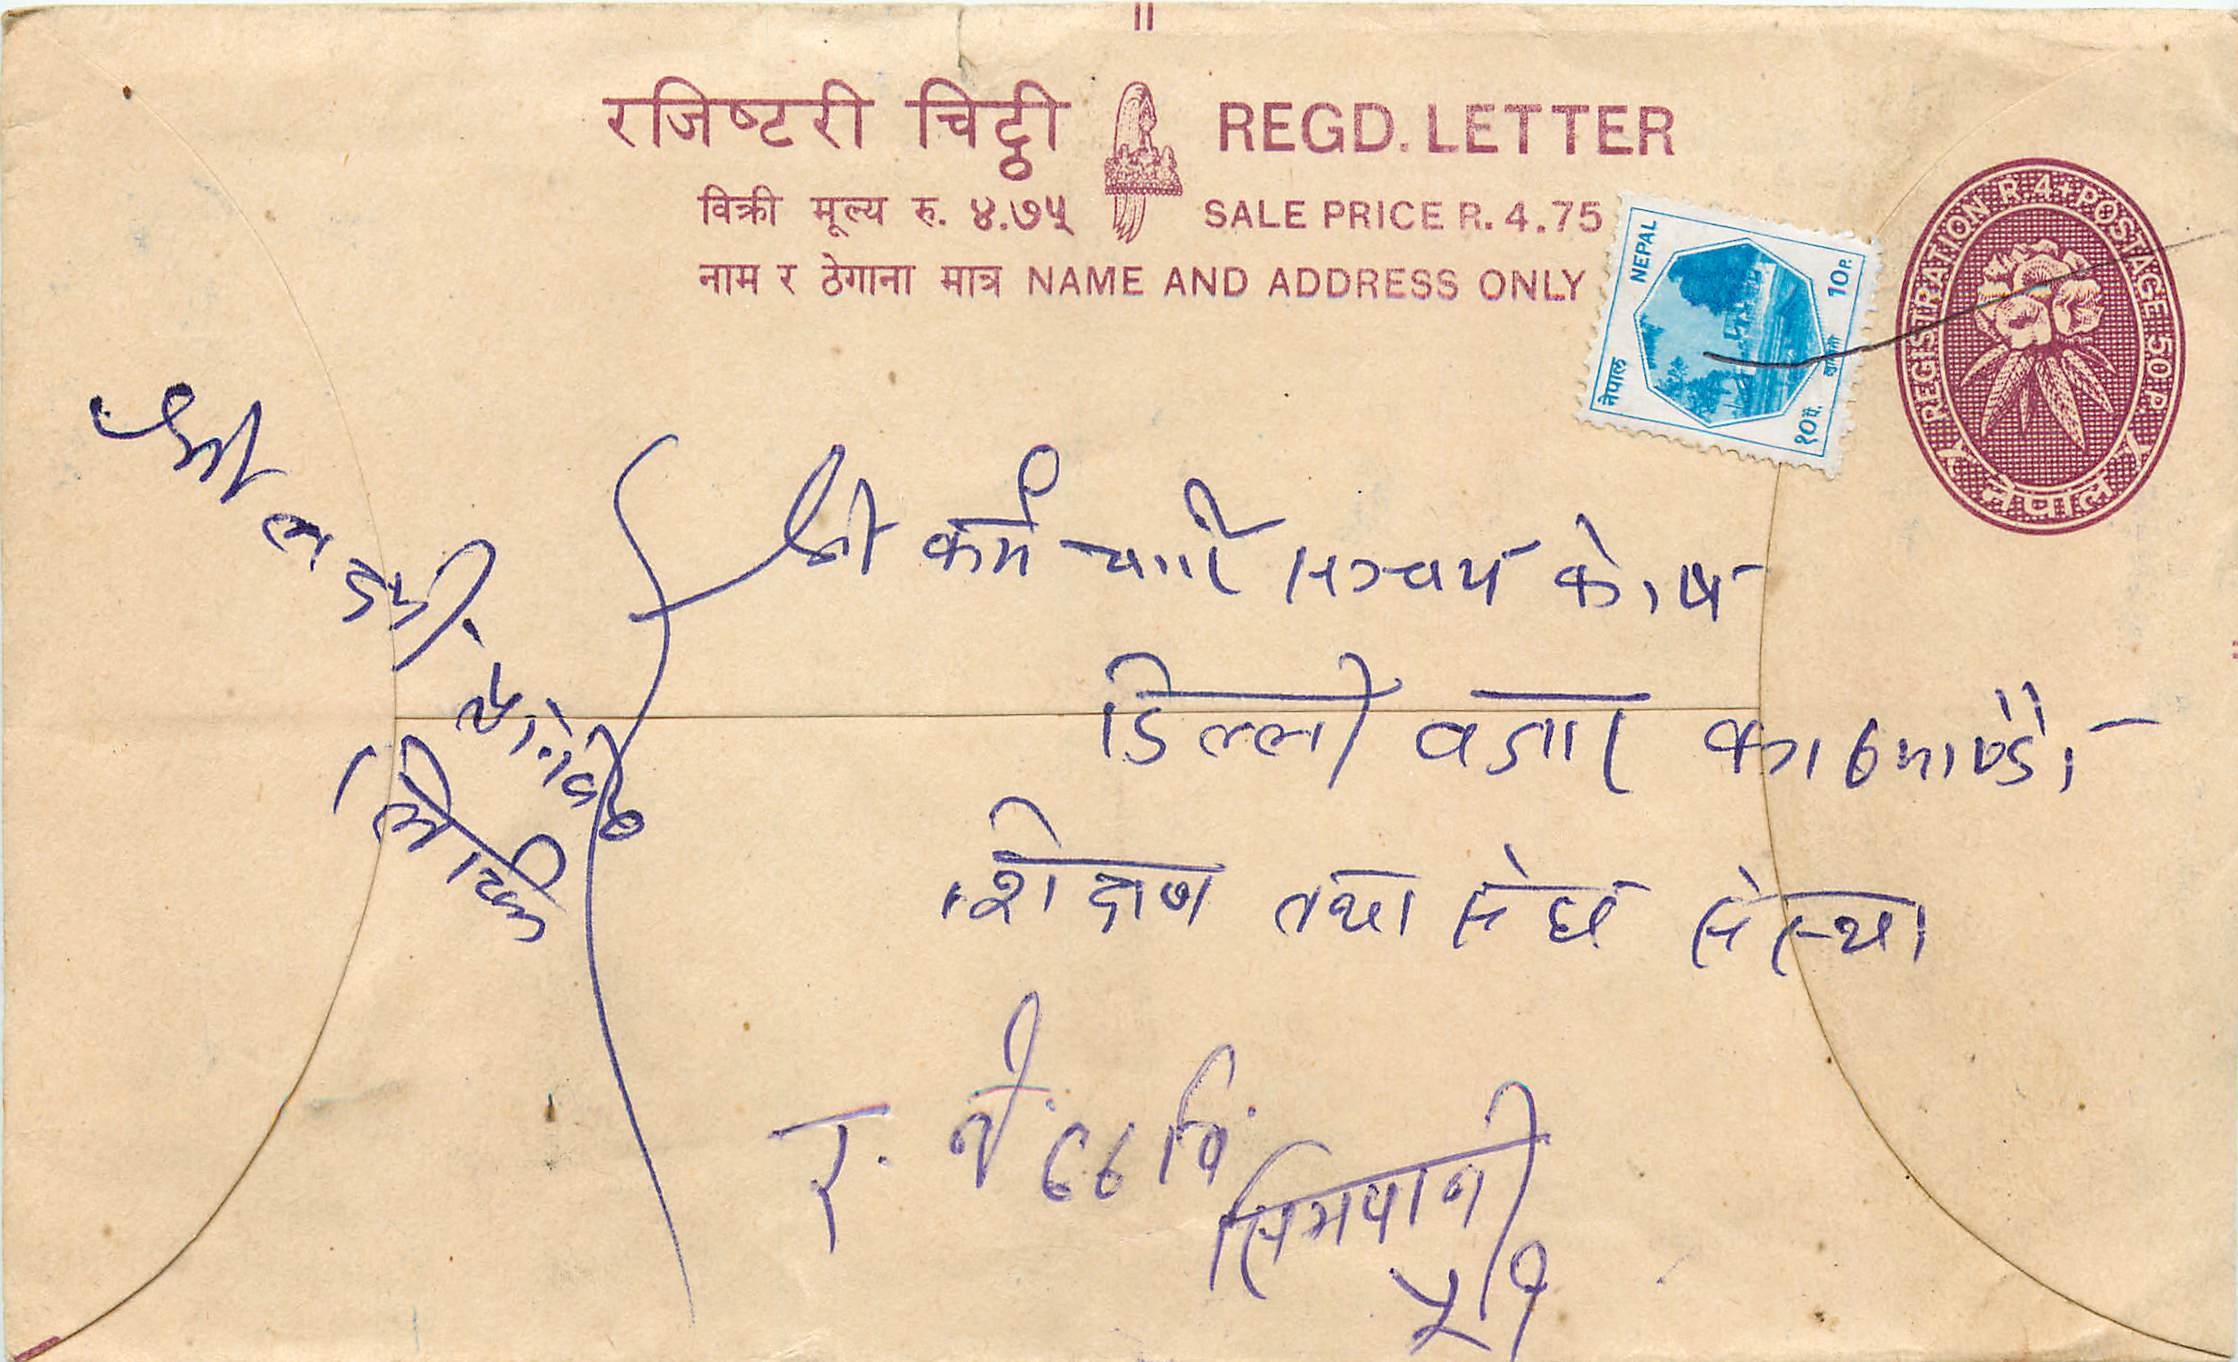 रजिष्टरी चिट्ठी REGD. LETTER
विक्री मूल्य रु. ४.७५ SALE PRICE R. 4.75
नाम र ठेगाना मात्र NAME AND ADDRESS ONLY
NEPAL 10P.
नेपाल १०पै.
REGISTRATION R.4+POSTAGE 50P.
नेपाल
श्री कर्मचारी सञ्चय कोष
डिल्ली बजार काठमाण्डौ
शिक्षण तथा संघ संस्था
र. नं ८८ वि
सिमपानी
५।१